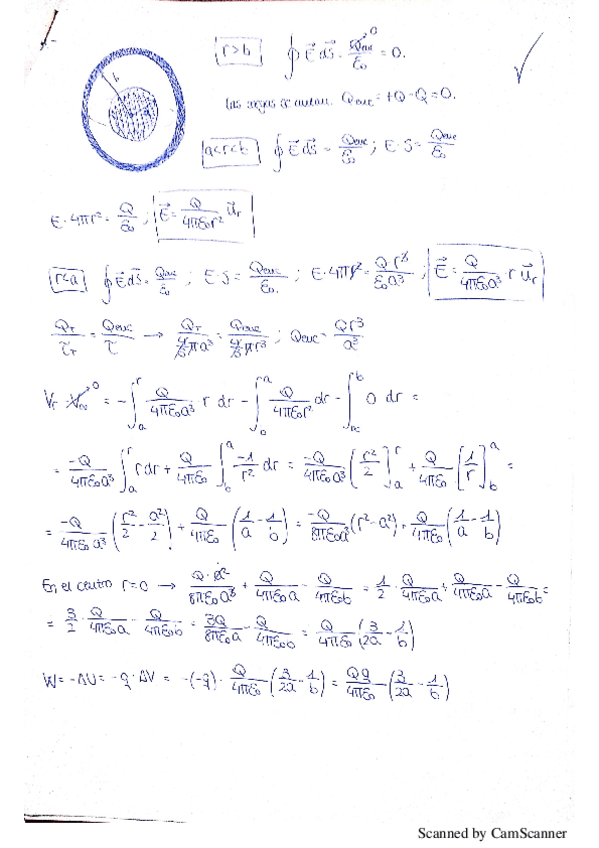 r>b ∮ E⃗ dS⃗ = Qenc/ε₀ = 0.
b
Las cargas se anulan. Qenc = +Q - Q = 0.
a<r<b ∮ E⃗ dS⃗ = Qenc/ε₀ ; E·S = Qenc/ε₀
E·4πr² = Q/ε₀ ; E⃗ = Q/4πε₀r² u⃗r
r<a ∮ E⃗ dS⃗ = Qenc/ε₀ ; E·S = Qenc/ε₀. ; E·4πr² = Q r³/ε₀a³ ; E⃗ = Q/4πε₀a³ · r u⃗r
QT/τT = Qenc/τ → QT/(4/3 πa³) = Qenc/(4/3 πr³) ; Qenc = Qr³/a³
Vr - V∞ 0 = -∫ₐʳ Q/4πε₀a³ · r dr - ∫ᵃ Q/4πε₀r² dr - ∫∞ᵇ 0 dr =
= -Q/4πε₀a³ ∫ₐʳ r dr + Q/4πε₀ ∫bᵃ -1/r² dr = -Q/4πε₀a³ [r²/2]ₐʳ + Q/4πε₀ [1/r]bᵃ =
= -Q/4πε₀a³ (r²/2 - a²/2) + Q/4πε₀ (1/a - 1/b) = -Q/8πε₀a³ (r²-a²) + Q/4πε₀ (1/a - 1/b)
En el centro r=0 → Q·a²/8πε₀a³ + Q/4πε₀a - Q/4πε₀b = 1/2 · Q/4πε₀a + Q/4πε₀a - Q/4πε₀b =
= 3/2 · Q/4πε₀a - Q/4πε₀b = 3Q/8πε₀a - Q/4πε₀b = Q/4πε₀ (3/2a - 1/b)
W = -ΔU = -q·ΔV = -(-q) · Q/4πε₀ (3/2a - 1/b) = Qq/4πε₀ (3/2a - 1/b)
Scanned by CamScanner